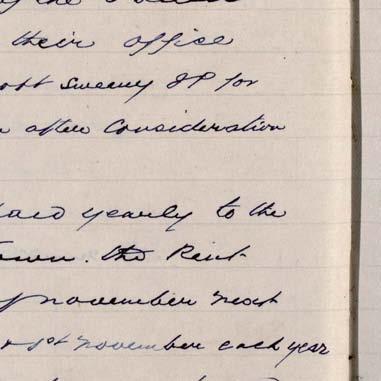 their office
Sweeny JP for
after Consideration
yearly to the
Town. the Rent
November next
1st November each year